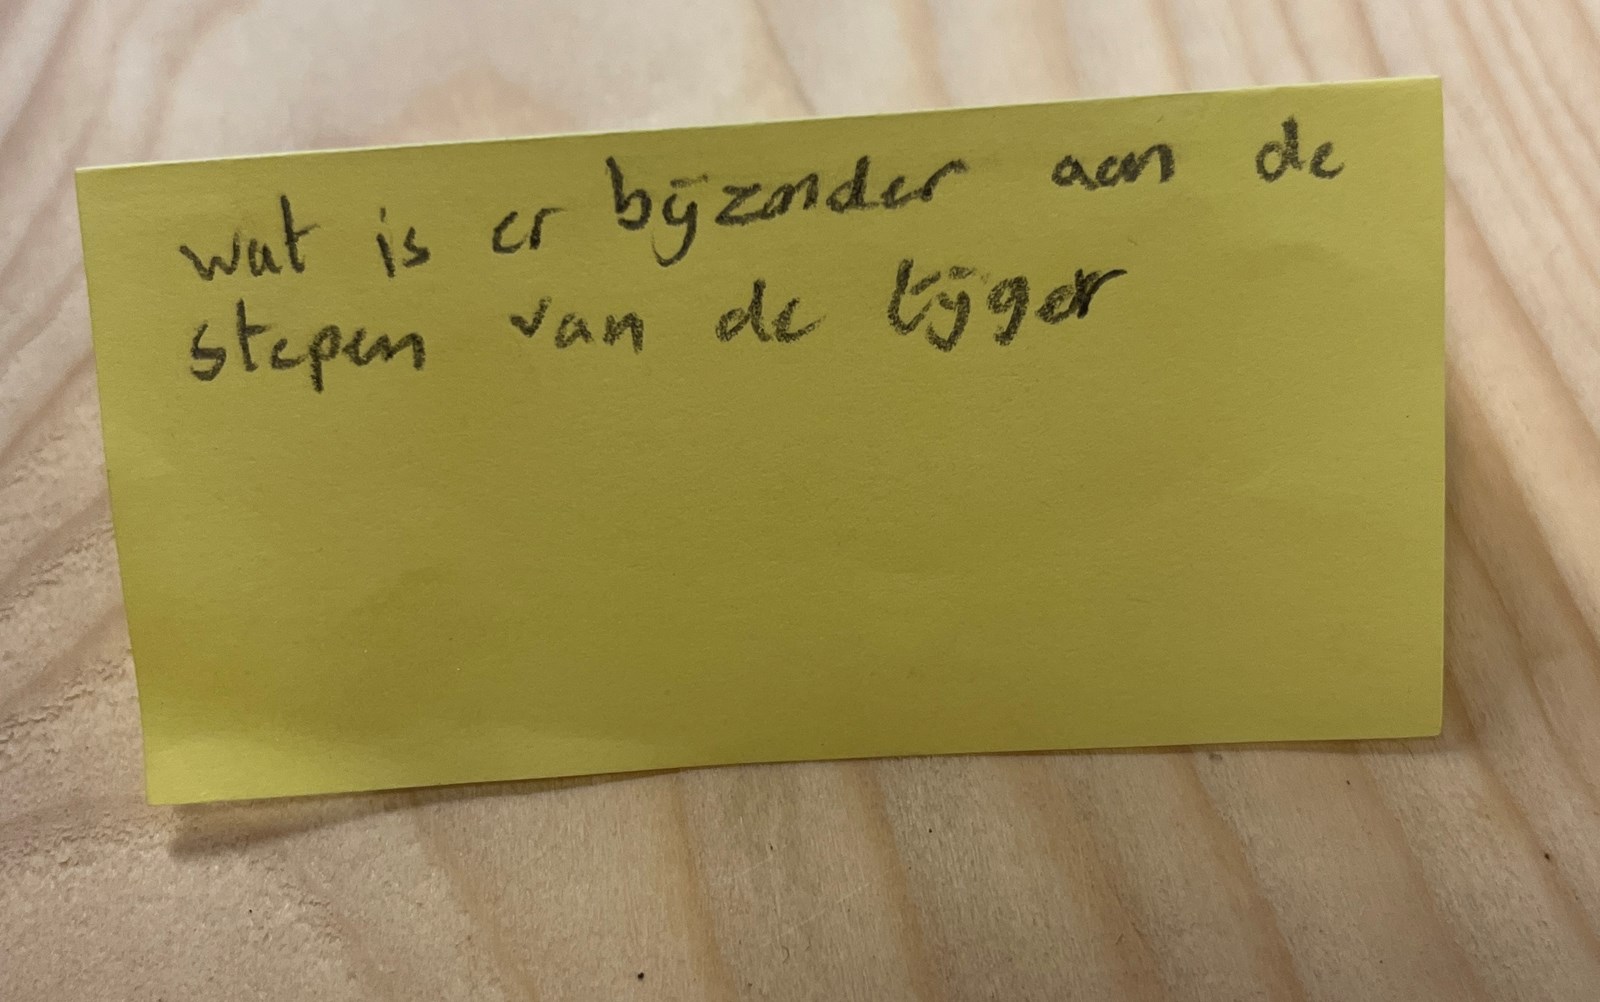 wat is er bijzonder aan de
stepen van de tijger